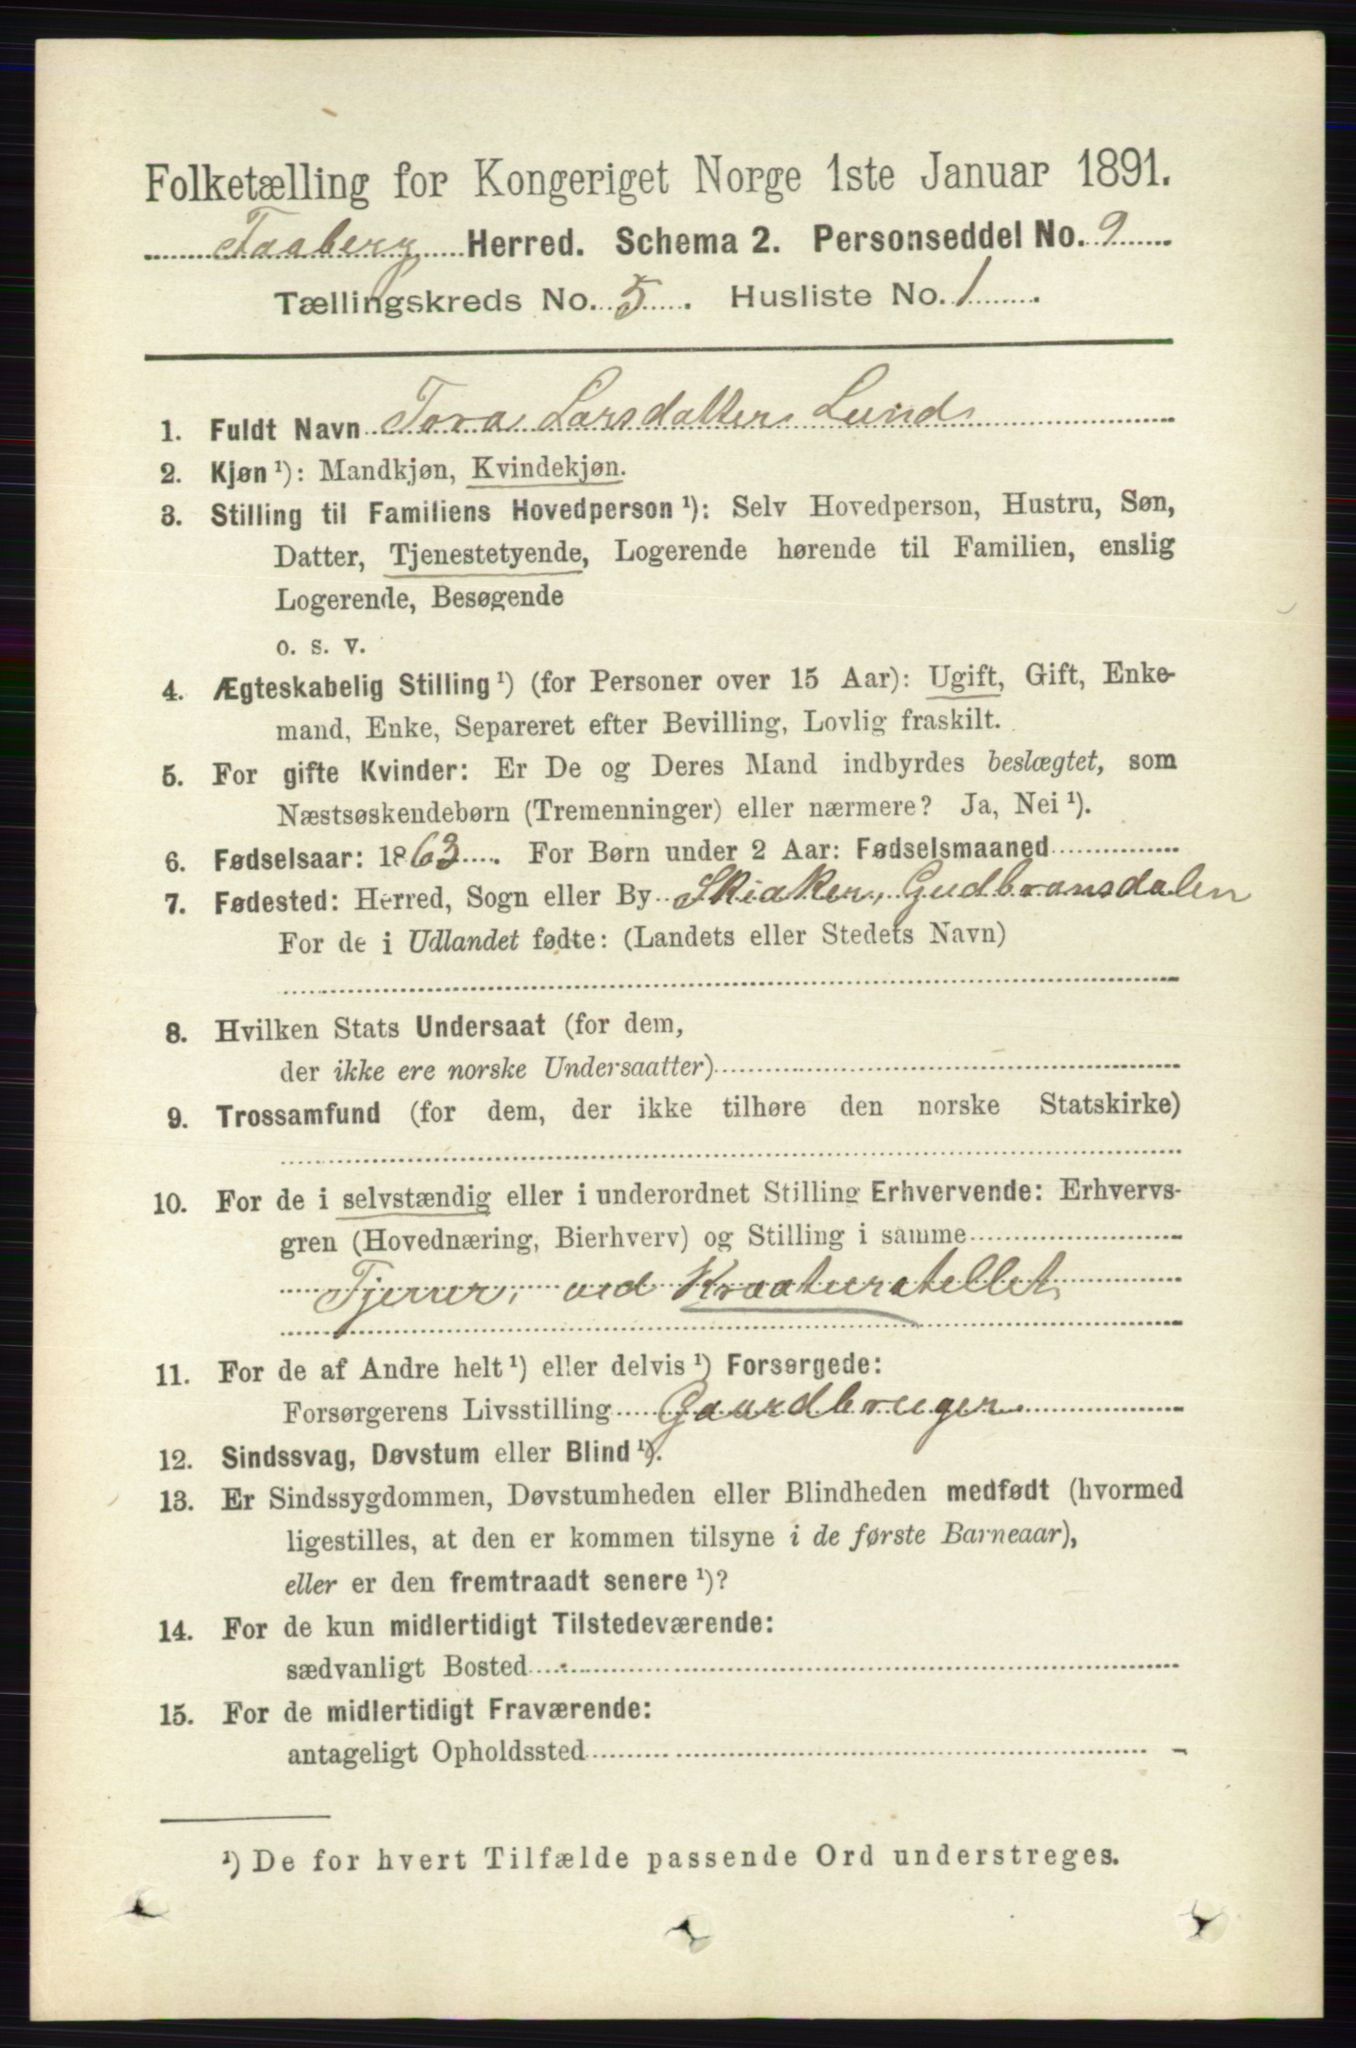 Folketælling for Kongeriget Norge 1ste Januar 1891.
Faaberg Herred. Schema 2. Personseddel No. 9
Tællingskreds No. 5. Husliste No. 1.
1. Fuldt Navn Tora Larsdatter Lund
2. Kjøn ¹): Mandkjøn, Kvindekjøn.
3. Stilling til Familiens Hovedperson ¹): Selv Hovedperson, Hustru, Søn,
Datter, Tjenestetyende, Logerende hørende til Familien, enslig
Logerende, Besøgende
o. s. v.
4. Ægteskabelig Stilling ¹) (for Personer over 15 Aar): Ugift, Gift, Enke-
mand, Enke, Separeret efter Bevilling, Lovlig fraskilt.
5. For gifte Kvinder: Er De og Deres Mand indbyrdes beslægtet, som
Næstsøskendebørn (Tremenninger) eller nærmere? Ja, Nei ¹).
6. Fødselsaar: 1863. For Børn under 2 Aar: Fødselsmaaned
7. Fødested: Herred, Sogn eller By Skiaker, Gudbransdalen
For de i Udlandet fødte: (Landets eller Stedets Navn)
8. Hvilken Stats Undersaat (for dem,
der ikke ere norske Undersaatter)
9. Trossamfund (for dem, der ikke tilhøre den norske Statskirke)
10. For de i selvstændig eller i underordnet Stilling Erhvervende: Erhvervs-
gren (Hovednæring, Bierhverv) og Stilling i samme
Tjener, ved Kreaturstellet
11. For de af Andre helt ¹) eller delvis ¹) Forsørgede:
Forsørgerens Livsstilling Gaardbruger
12. Sindssvag, Døvstum eller Blind ¹).
13. Er Sindssygdommen, Døvstumheden eller Blindheden medfødt (hvormed
ligestilles, at den er kommen tilsyne i de første Barneaar),
eller er den fremtraadt senere ¹)?
14. For de kun midlertidigt Tilstedeværende:
sædvanligt Bosted
15. For de midlertidigt Fraværende:
antageligt Opholdssted
¹) De for hvert Tilfælde passende Ord understreges.